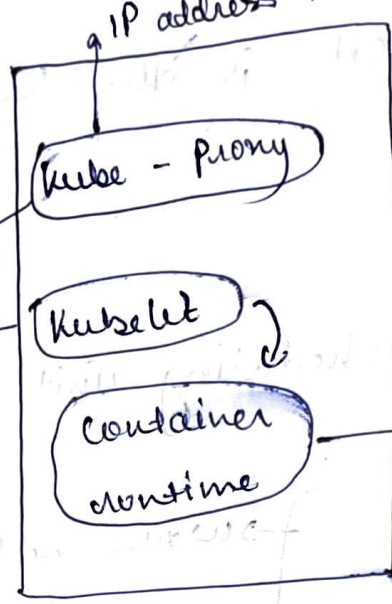 IP address
Kube - Proxy
Kubelet
Container
runtime